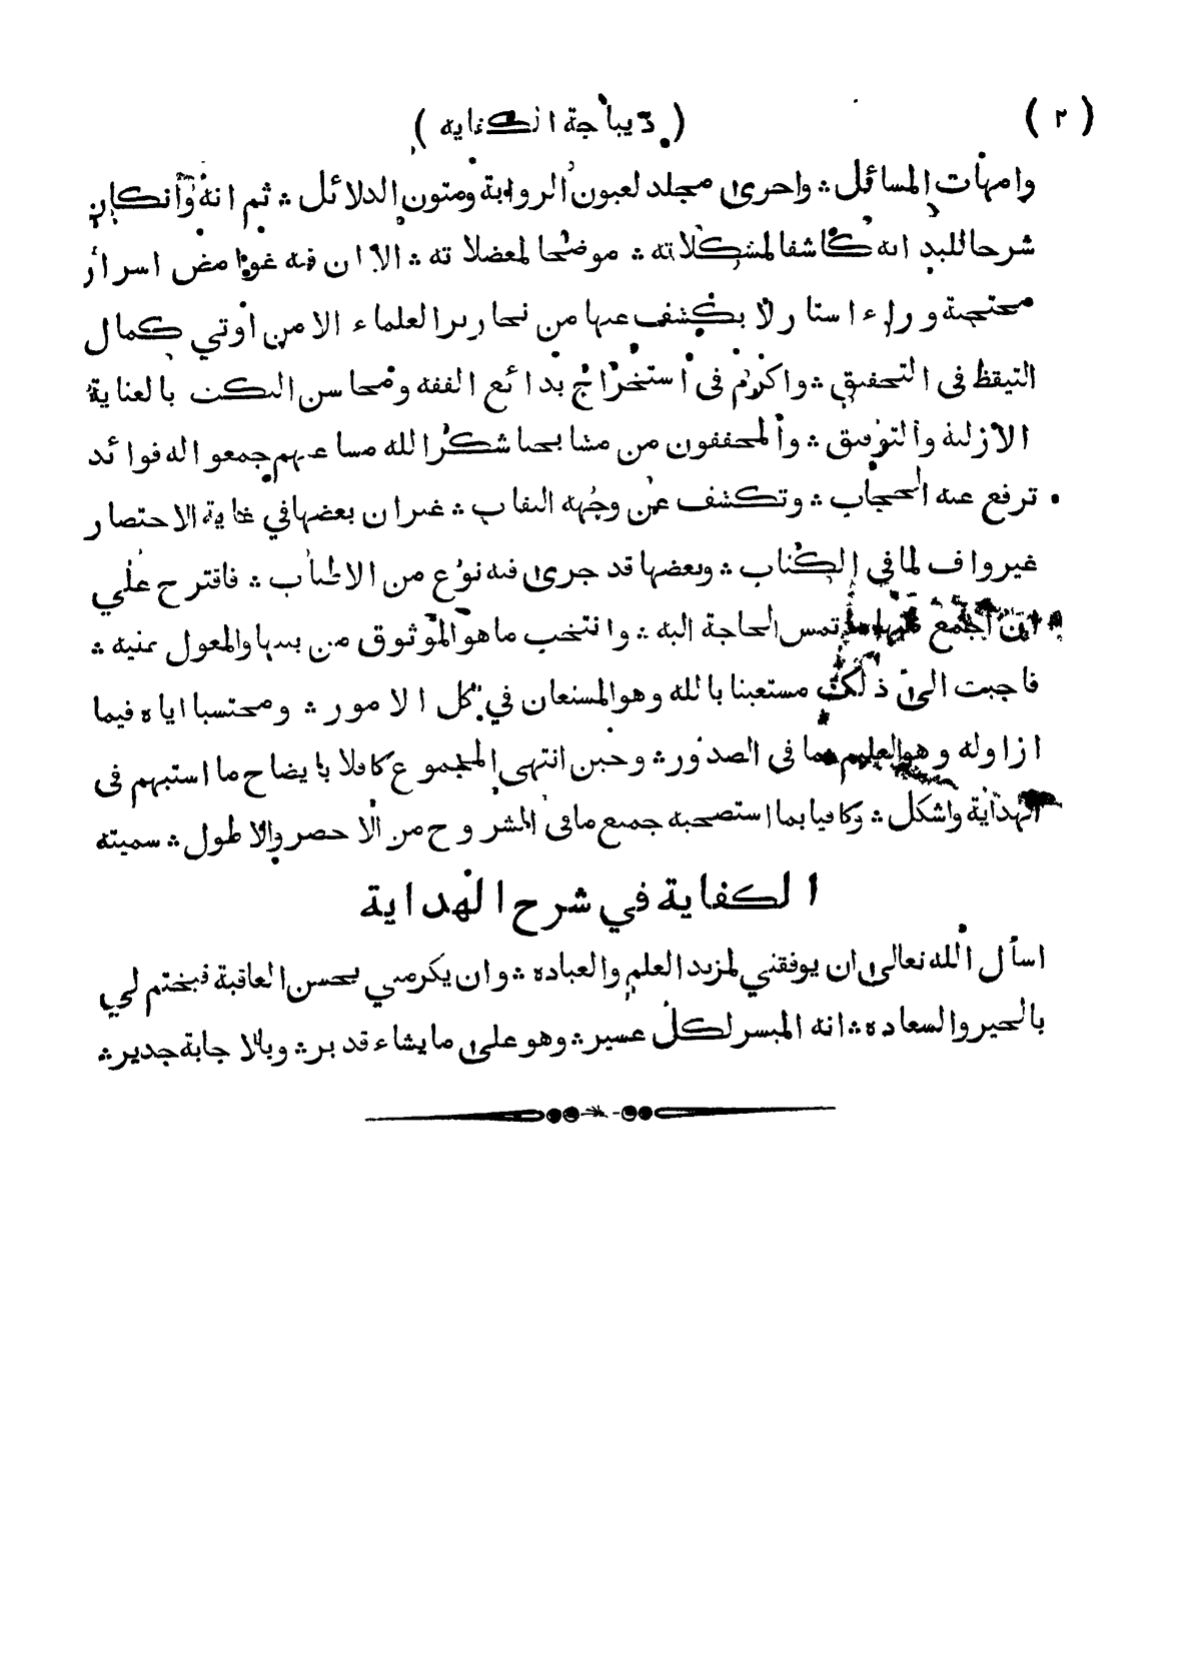 ( ٢ ) ( ديباجة الكفاية )
وامهات المسائل ؞ واحرى مجلد لعيون الرواية ومتون الدلائل ؞ ثم انه وان كان
شرحا للبداية كاشفا لمشكلاته ؞ موضحا لمعضلاته ؞ الا ان فيه غوامض اسرار
محتجبة وراء استار لا يكشف عنها من نحارير العلماء الا من اوتي كمال
التيقظ في التحقيق ؞ واكرم في استخراج بدائع الفقه ومحاسن النكت بالعناية
الازلية والتوفيق ؞ والمحققون من مشايخنا شكر الله مساعيهم جمعوا له فوائد
ترفع عنه الحجاب ؞ وتكشف عن وجهه النقاب ؞ غير ان بعضها في غاية الاختصار
غير واف لما في الكتاب ؞ وبعضها قد جرى فيه نوع من الاطناب ؞ فاقترح علي
ان اجمع منها ما تمس الحاجة اليه ؞ وانتخب ما هو الموثوق من بينها والمعول عليه ؞
فاجبت الى ذلك مستعينا بالله وهو المستعان في كل الامور ؞ ومحتسبا اياه فيما
ازاوله وهو العليم بما في الصدور ؞ وحين انتهى المجموع كافلا بايضاح ما استبهم في
الهداية واشكل ؞ وكافيا بما استصحبه جميع ما في الشروح من الاحصر والاطول ؞ سميته
الكفاية في شرح الهداية
اسأل الله تعالى ان يوفقني لمزيد العلم والعباده ؞ وان يكرمني بحسن العاقبة فيختم لي
بالخير والسعاده ؞ انه الميسر لكل عسير ؞ وهو على ما يشاء قدير ؞ وبالاجابة جدير ؞